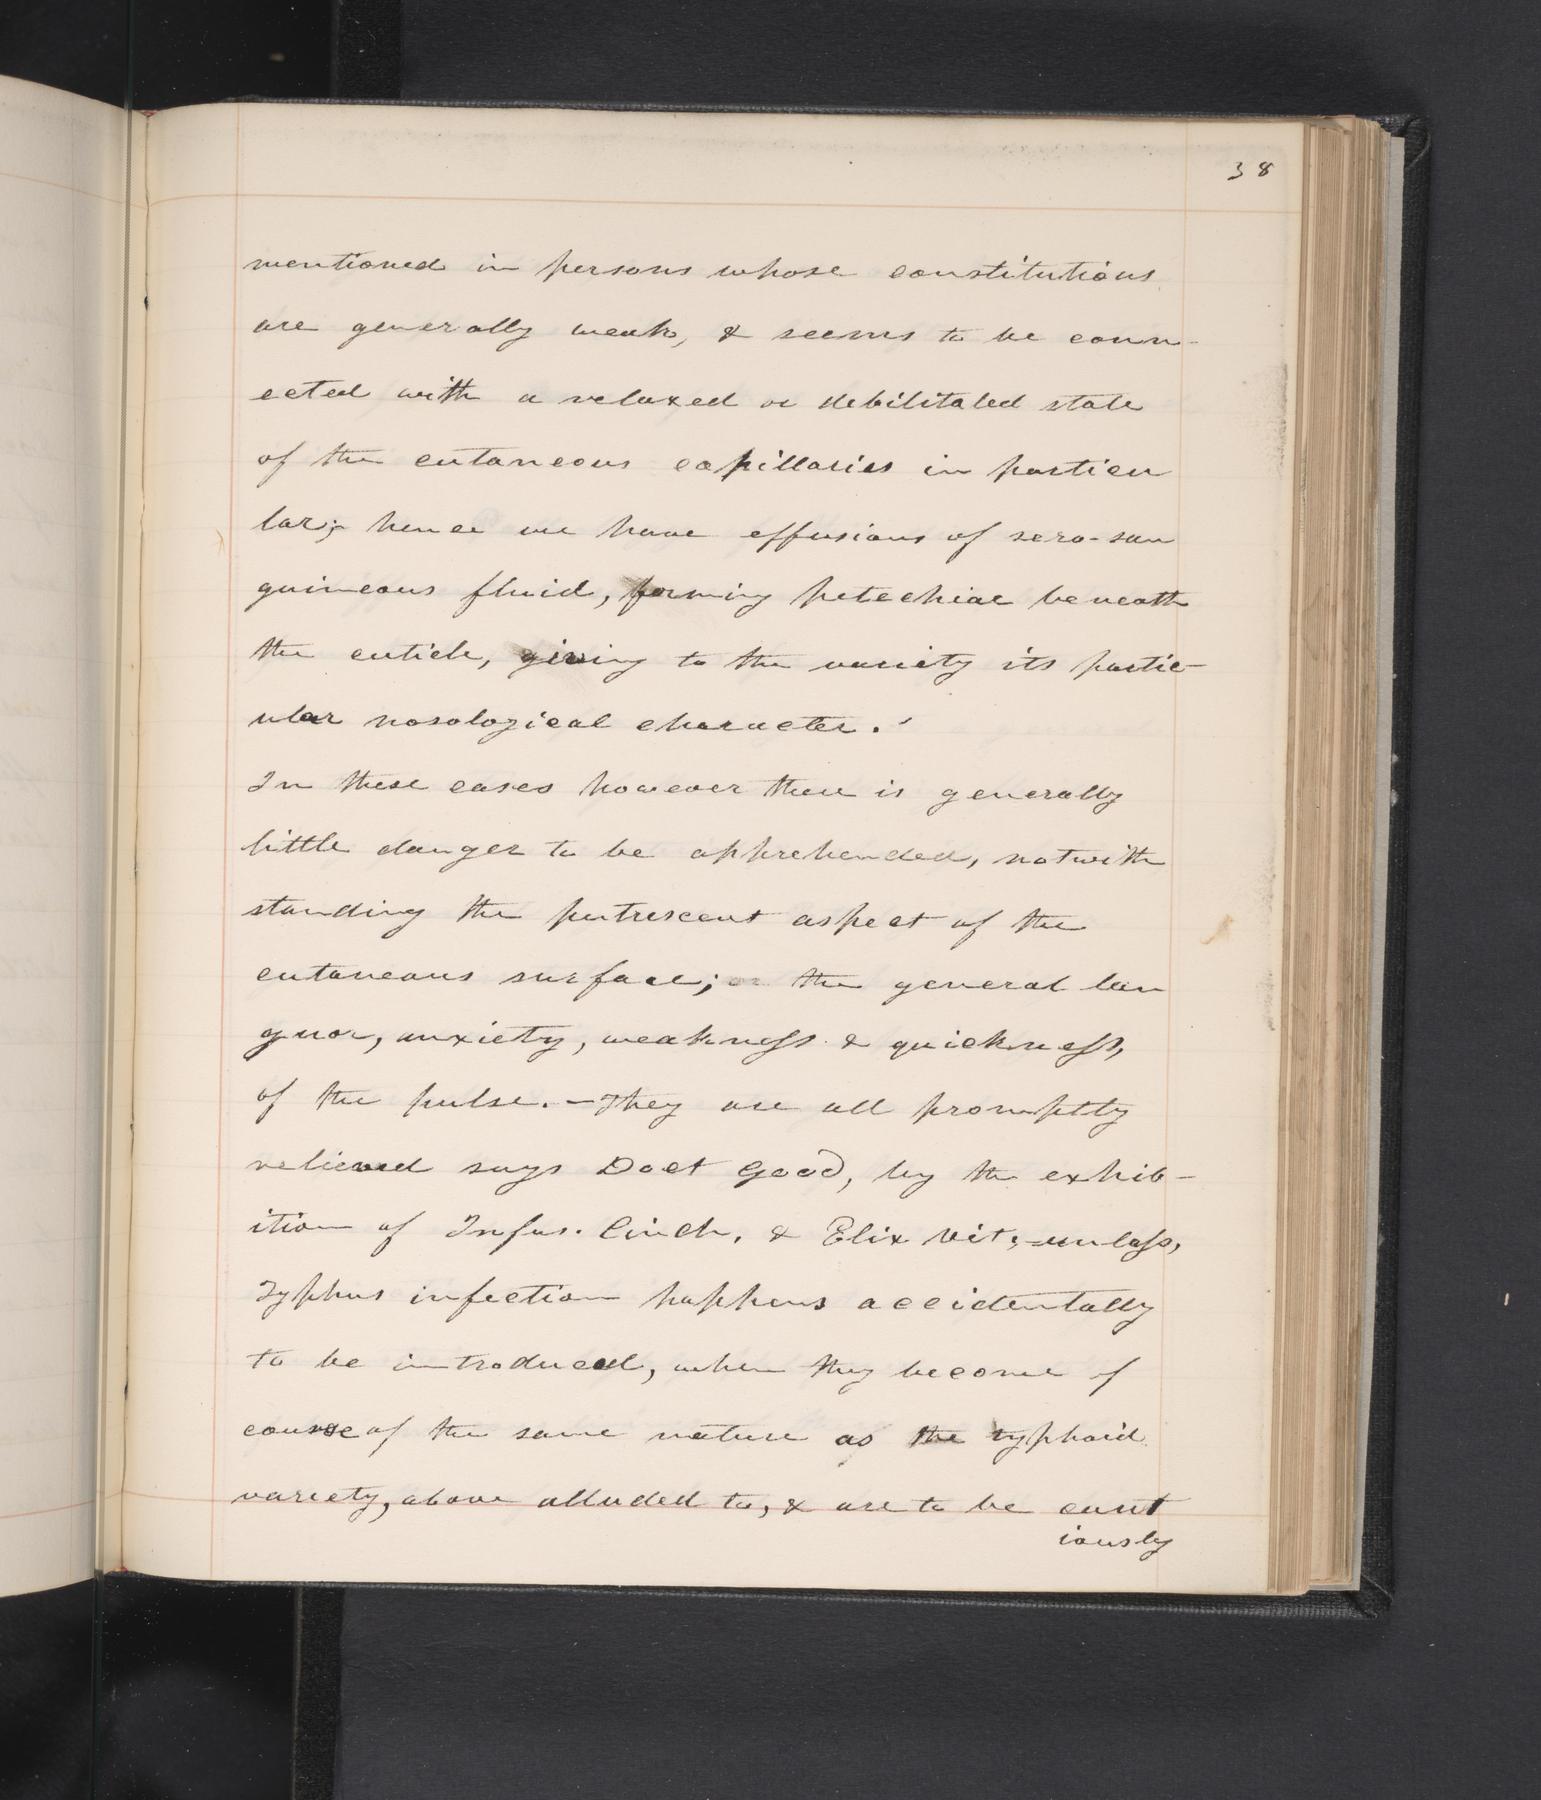 38
mentioned in persons whose constitutions
are generally weak, & seems to be conn-
ected with a relaxed or debilitated state
of the cutaneous capillaries in particu
lar; hence we have effusions of sero-san
guineous fluid, forming petechiae beneath
the cuticle, giving to the variety its partic-
ular nosological character.
In these cases however there is generally
little danger to be apprehended, notwith
standing the putrescent aspect of the
cutaneous surface; or the general lan
guor, anxiety, weakness & quickness,
of the pulse. — They are all promptly
relieved says Doct Good, by the exhib-
ition of Infus. Cinch, & Elix Vit; – unless,
Typhus infection happens accidentally
to be introduced, when they become of
course of the same nature as the typhoid
variety, above alluded to, & are to be caut
iously